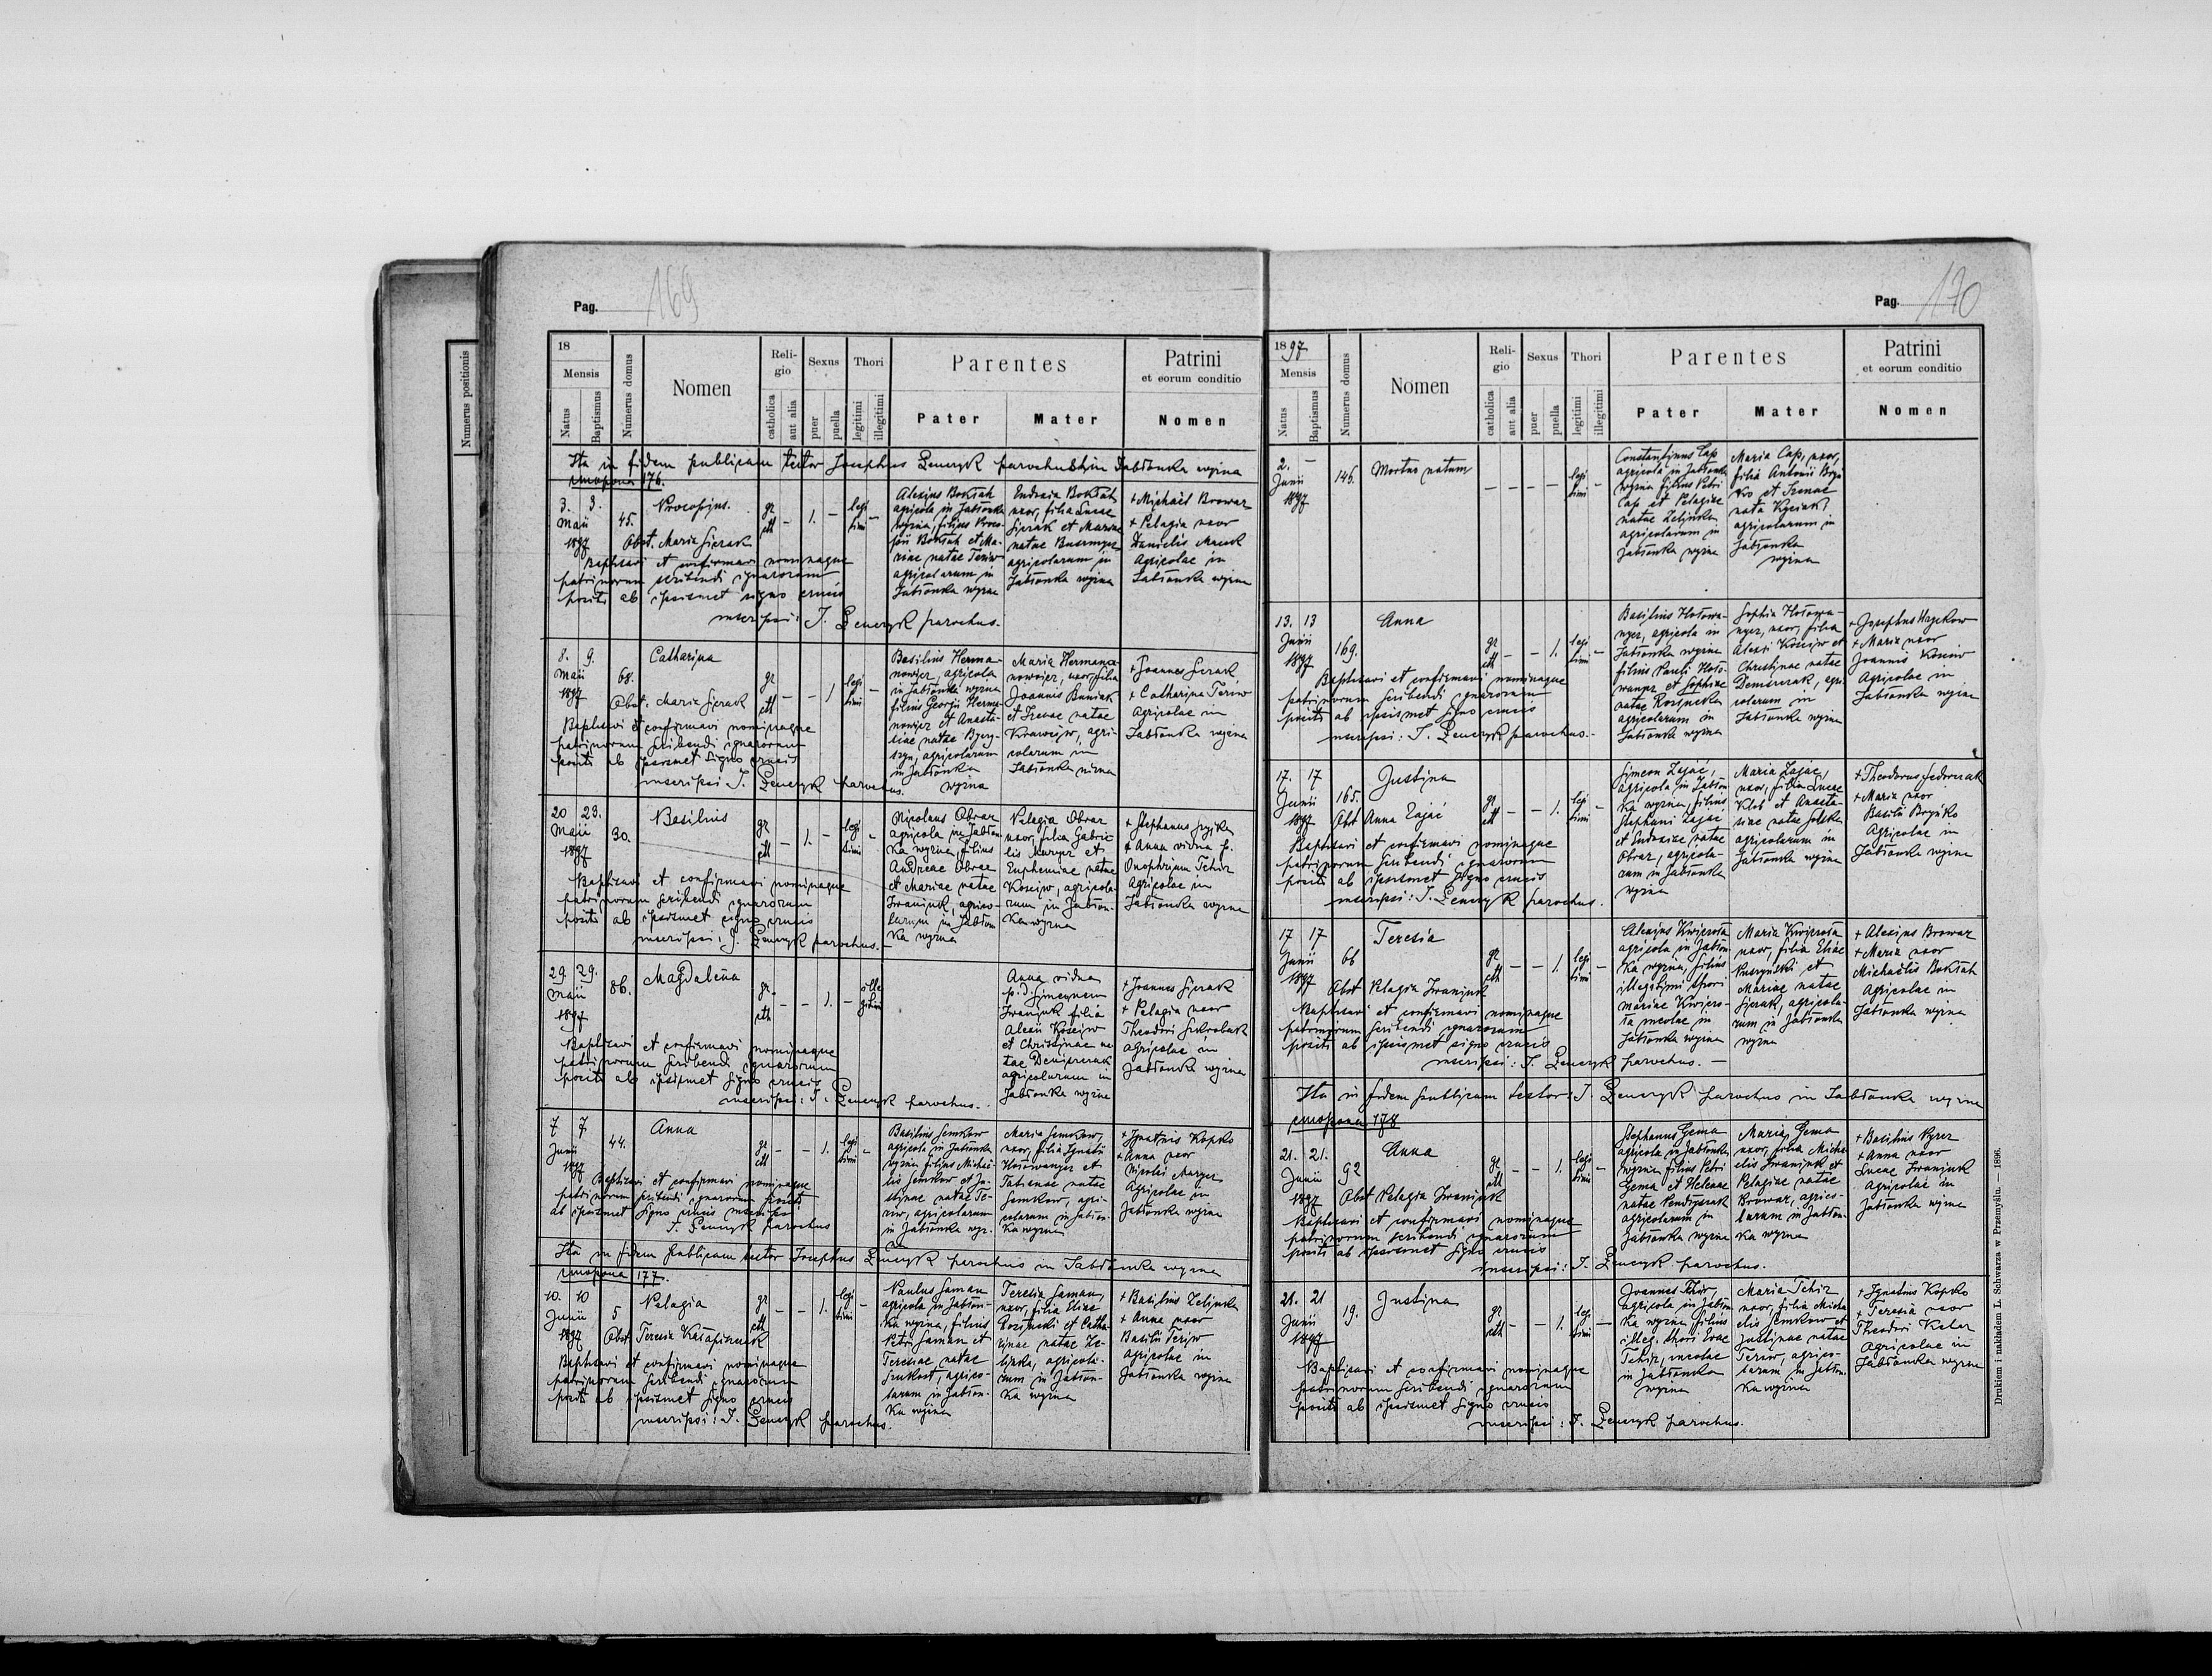 Pag. 169
Numerus positionis
18
Mensis
Natus
Baptismus
Numerus domus
Nomen
Religio
catholica
aut alia
Sexus
puer
puella
Thori
legitimi
illegitimi
Parentes
Pater
Mater
Patrini
et eorum conditio
Nomen
Ita in fidem publicam testor Josephus parochus in Jabłonka wyżna
176.
3. 3.
Maji
1897
45.
Procopius.
Obst. Maria Sierak
gr
cth
-
1.
-
legi
timi
-
Alexius Boktah
agricola in Jabłonka
wyżna, filius Proco-
pii Boktah et Ma-
riae natae Teriw
agricolarum in
Jabłonka wyżna
Eudocia Boktah
uxor, filia Lucae
Sierak et
natae
agricolarum in
Jabłonka wyżna
+ Michaël Browar
+ Pelagia uxor
Danielis
Agricolae in
Jabłonka wyżna
Baptisavi et confirmavi nominaque
patrinorum scribendi ignarorum
positi ab ipsismet signo crucis
inscripsi: J. parochus.
8. 9.
Maji
1897
68.
Catharina
Obst. Maria Sierak
gr
cth
-
-
1
legi
timi
-
Basilius Herma-
nowicz, agricola
in Jabłonka wyżna
filius Georgii Herma-
nowicz et Anasta-
siae natae
agricolarum
in Jabłonka
wyżna
Maria Hermana-
uxor, filia
Joannis
et Irenae natae
agri-
colarum in
Jabłonka
+ Joannes Sierak
+ Catharina Teriw
Agricolae in
Jabłonka wyżna
Baptisavi et confirmavi nominaque
patrinorum scribendi ignarorum
positi ab ipsismet signo crucis
inscripsi J. parochus.
20 23.
Maji
1897
30.
Basilius
gr
cth
-
1.
-
legi
timi
-
Nicolaus Obraz
agricola in Jabłon-
ka wyżna, filius
Andreae Obraz
et Mariae natae
Iwaniuk, agrico-
larum in Jabłon
ka wyżna
Pelagia Obraz
uxor, filia Gabrie
lis et
Euphemiae natae
Kosciw, agricola-
rum in Jabłon-
ka wyżna
+ Stephanus
+ Anna vidua p.
Onophrium Tchir
Agricolae in
Jabłonka wyżna
Baptisavi et confirmavi nominaque
patrinorum scribendi ignarorum
positi ab ipsismet signo crucis
inscripsi: J. parochus.
29. 29.
Maji
1897
86.
Magdalena
gr.
cth
-
-
1.
-
ille
gitimi
Anna vidua
p. d. Simeonem
Iwaniuk filia
Alexii Kosciw
et Christinae na
tae
agricolarum in
Jabłonka wyżna
+ Joannes Sierak
+ Pelagia uxor
Theodori
Agricolae in
Jabłonka wyżna
Baptisavi et confirmavi nominaque
patrinorum scribendi ignarorum
positi ab ipsismet signo crucis
inscripsi: J. parochus.
7 7
Junii
1897
44.
Anna
gr
cth
-
-
1.
legi
timi
-
Basilius Semkow
agricola in Jabłonka
wyżna filius Michaë-
lis Semkow et Ju-
stinae natae Te-
riw, agricolarum
in Jabłonka wyż-
na
Maria Semkow,
uxor, filia Ignatii
Hołowanycz et
Tatianae natae
Semkow, agri-
colarum in Jabłon-
ka wyżna
+ Ignatius Kopko
+ Anna uxor
Nicolai
Agricolae in
Jabłonka wyżna
Baptisavi et confirmavi nominaque
patrinorum scribendi ignarorum positi
ab ipsismet signo crucis inscripsi
J. parochus
Ita in fidem publicam testor Josephus parochus in Jabłonka wyżna
177.
10. 10
Junii
1897
5
Pelagia
Obst Teresia
gr
cth
-
-
1.
legi
timi
-
Paulus Saman
agricola in Jabłon-
ka wyżna, filius
Petri Saman et
Teresiae natae
agrico-
larum in Jabłon-
ka wyżna
Teresia Saman,
uxor, filia Eliae
et Catha-
rinae natae Ze-
linka, agricola-
rum in Jabłon-
ka wyżna
+ Basilius Zelinka
+ Anna uxor
Basilii Teriw
Agricolae in
Jabłonka wyżna
Baptisavi et confirmavi nominaque
patrinorum scribendi ignarorum
positi ab ipsismet signo crucis
inscripsi: J. parochus.
Pag. 170
1897
Mensis
Natus
Baptismus
Numerus domus
Nomen
Religio
catholica
aut alia
Sexus
puer
puella
Thori
legitimi
illegitimi
Parentes
Pater
Mater
Patrini
et eorum conditio
Nomen
2. -
Junii
1897
145.
Mortus natum
-
-
-
-
legi
timi
-
Constantinus Cap
agricola in Jabłonka
wyżna filius Petri
Cap et Pelagiae
natae Zelinka
agricolarum in
Jabłonka wyżna
Maria Cap, uxor,
filia Antonii
et Irenae
nata
agricolarum in
Jabłonka
wyżna
13. 13
Junii
1897
169.
Anna
gr
cth
-
-
1.
legi
timi
-
Basilius Hołowa-
nycz, agricola in
Jabłonka wyżna
filius Pauli Hoło-
wanycz et Sophiae
natae
agricolarum in
Jabłonka wyżna
Sophia Hołowa-
nycz, uxor, filia
Alexii Kosciw et
Christinae natae
agri-
colarum in
Jabłonka wyżna
+ Josephus Hryckow
+ Maria uxor
Joannis Kosciw
Agricolae in
Jabłonka wyżna
Baptisavi et confirmavi nominaque
patrinorum scribendi ignarorum
positi ab ipsismet signo crucis
inscripsi: J. parochus.
17. 17
Junii
1897
165.
Justina
Obst Anna Zając
gr
cth
-
-
1.
legi
timi
-
Simeon Zając,
agricola in Jabłon-
ka wyżna, filius
Stephani Zając
et Eudociae natae
Obraz, agricola-
rum in Jabłonka
wyżna
Maria Zając,
uxor, filia Lucae
Kłob et Anasta-
siae natae
agricolarum in
Jabłonka wyżna
+ Theodorus Fedorczak
+ Maria uxor
Basilii
Agricolae in
Jabłonka wyżna
Baptisavi et confirmavi nominaque
patrinorum scribendi ignarorum
positi ab ipsismet signo crucis
inscripsi: J. parochus.
17 17
Junii
1897
66
Teresia
Obst Pelagia Iwaniuk
gr
cth
-
-
1.
legi
timi
-
Alexius
agricola in Jabłon-
ka wyżna, filius
illegitimi thori
Mariae
incolae in
Jabłonka wyżna
Maria
uxor, filia Eliae
et
Mariae natae
Sierak, agricola-
rum in Jabłonka
wyżna
+ Alexius Browar
+ Maria uxor
Michaëlis Boktah
Agricolae in
Jabłonka wyżna
Baptisavi et confirmavi nominaque
patrinorum scribendi ignarorum
positi ab ipsismet signo crucis
inscripsi: J. parochus.
Ita in fidem publicam testor: J. parochus in Jabłonka wyżna
178
21. 21.
Junii
1897
92
Anna
Obst Pelagia Iwaniuk
gr
cth
-
-
1.
legi
timi
-
Stephanus Gema
agricola in Jabłonka
wyżna filius Petri
Gema et Helenae
natae
agricolarum in
Jabłonka wyżna
Maria Gema
uxor, filia Micha
elis Iwaniuk et
Pelagiae natae
Browar, agrico-
larum in Jabłon-
ka wyżna
+ Basilius
+ Anna uxor
Lucae Iwaniuk
Agricolae in
Jabłonka wyżna
Baptisavi et confirmavi nominaque
patrinorum scribendi ignarorum
positi ab ipsismet signo crucis
inscripsi: J. parochus.
21. 21
Junii
1897
19.
Justina
gr
cth
-
-
1.
legi
timi
-
Joannes Tchir,
agricola in Jabłon
ka wyżna filius
illeg. thori Evae
Tchir, incolae
in Jabłonka
wyżna
Maria Tchir
uxor, filia Micha
elis Semkow et
Justinae natae
Teriw, agrico-
larum in Jabłon-
ka wyżna
+ Ignatius Kopko
+ Teresia uxor
Theodori
Agricolae in
Jabłonka wyżna
Baptisavi et confirmavi nominaque
patrinorum scribendi ignarorum
positi ab ipsismet signo crucis
inscripsi: J. parochus.
Drukiem i nakładem L. Schwarza w Przemyślu. — 1896.